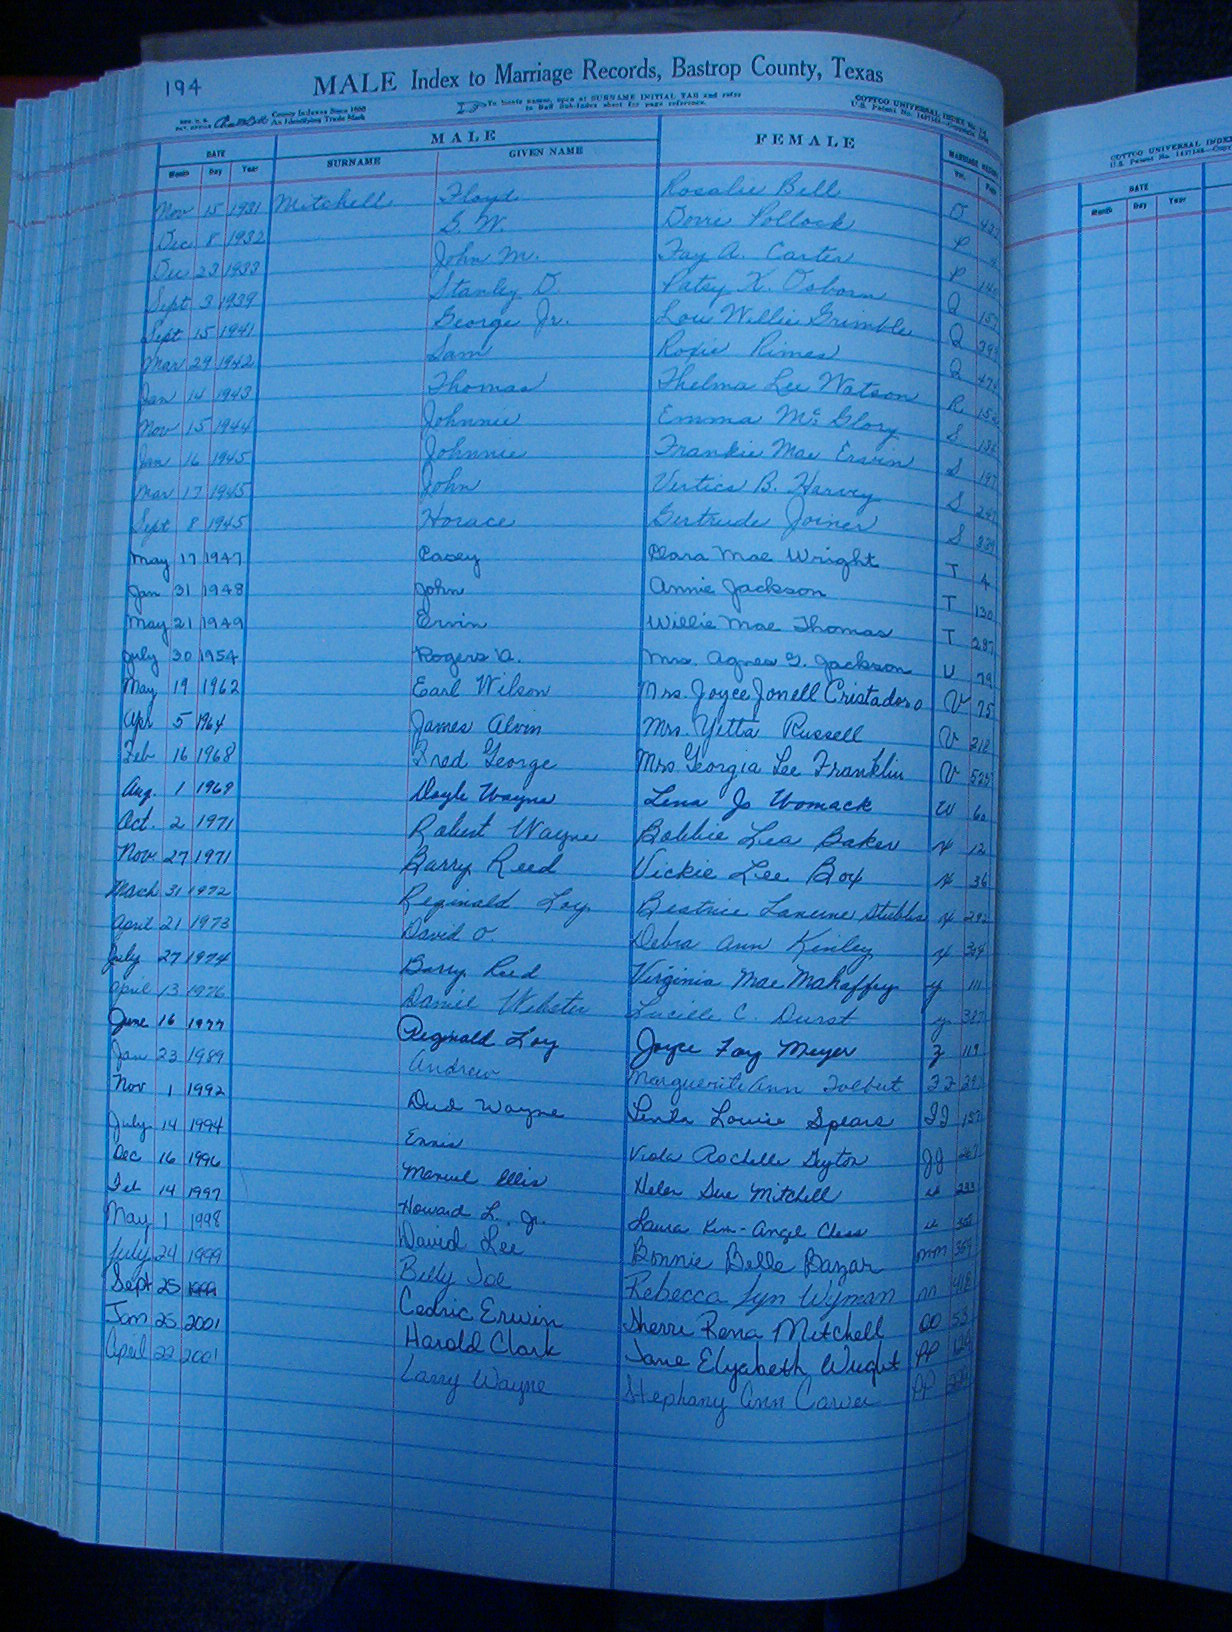 194
MALE Index to Marriage Records, Bastrop County, Texas
County Indexes Since 1888
An Identifying Trade Mark
To locate names, open at SURNAME INITIAL TAB and refer
to Buff Sub-Index sheet for page reference.
COTTCO UNIVERSAL INDEX
U. S. Patent No.
DATE MALE FEMALE MARRIAGE RECORD
Month Day Year SURNAME GIVEN NAME Vol. Page
Nov 15 1931 Mitchell Floyd Rosalie Bell O
Dec 8 1932 G. W. Dorre Pollock P
Dec 23 1933 John M. Fay A. Carter P
Sept 3 1939 Stanley D. Patsy K. Osborn Q
Sept 15 1941 George Jr. Lou Willie Grimble Q
Mar 29 1942 Sam Roxie Rimes Q
Jan 14 1943 Thomas Thelma Lee Watson R
Nov 15 1944 Johnnie Emma McGlory S
Jan 16 1945 Johnnie Frankie Mae Erwin S 197
Mar 17 1945 John Vertica B. Harvey S
Sept 8 1945 Horace Gertrude Joiner S
May 17 1947 Casey Clara Mae Wright T 4
Jan 31 1948 John Annie Jackson T 130
May 21 1949 Ervin Willie Mae Thomas T 287
July 30 1954 Rogers A. Mrs. Agnes G. Jackson U 79
May 19 1962 Earl Wilson Mrs Joyce Jonell Cristadoro V 75
Apr 5 1964 James Alvin Mrs. Yetta Russell V 212
Feb 16 1968 Fred George Mrs. Georgia Lee Franklin V 525
Aug. 1 1969 Doyle Wayne Lena Jo Womack W 60
Oct. 2 1971 Robert Wayne Bobbie Lea Baker X 12
Nov 27 1971 Barry Reed Vickie Lee Box X 36
March 31 1972 Reginald Loy Beatrice Lanune Stubbs X 292
April 21 1973 David O. Debra Ann Kinley X
July 27 1974 Barry Reed Virginia Mae Mahaffey Y 111
April 13 1976 Daniel Webster Lucille C. Durst Y 387
June 16 1977 Reginald Loy Joyce Fay Meyer Z 119
Jan 23 1989 Andrew Marguerite Ann Tolbert FF
Nov 1 1992 Dud Wayne Linda Louise Spears II 157
July 14 1994 Ennis Viola Rochelle Deyton JJ 267
Dec 16 1996 Manuel Ellis Helen Sue Mitchell 233
Feb 14 1997 Howard L. Jr. Laura Kim-Angel Cless
May 1 1998 David Lee Bonnie Belle Bazar mm 359
July 24 1999 Billy Joe Rebecca Lyn Wyman nn 418
Sept 25 1999 Cedric Erwin Sherri Rena Mitchell OO 53
Jan 25 2001 Harold Clark Jane Elyzabeth Wright PP
April 22 2001 Larry Wayne Stephany Ann Carver PP
COTTCO UNIVERSAL INDE
U. S. Patent No.
DATE
Month Day Year